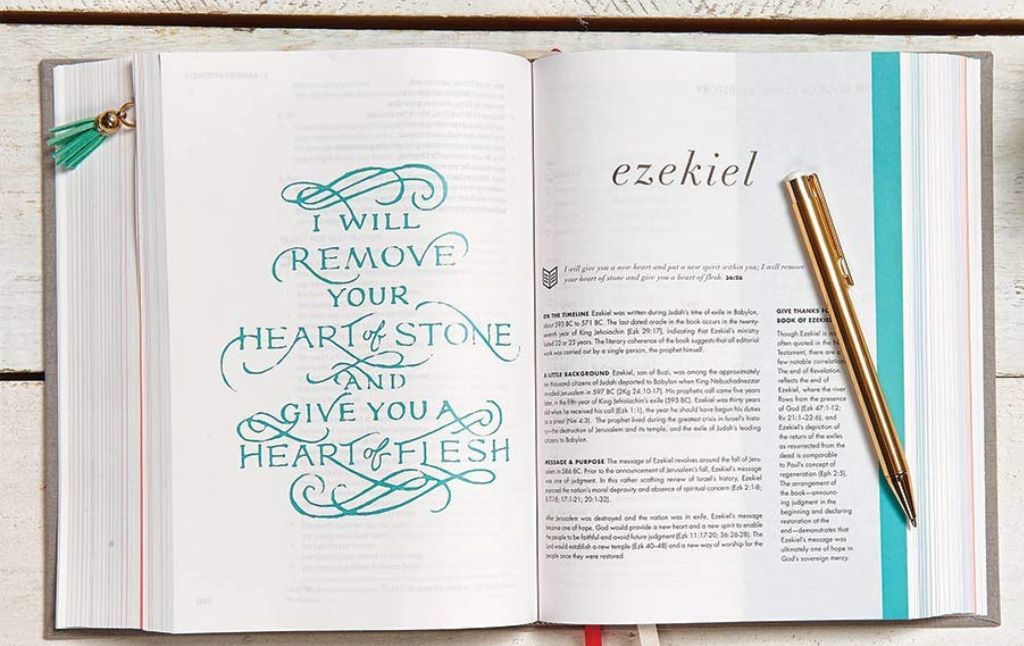 I WILL
REMOVE
YOUR
HEART of STONE
AND
GIVE YOU A
HEART of FLESH
ezekiel
I will give you a new heart and put a new spirit within you; I will remove
your heart of stone and give you a heart of flesh. 36:26
ON THE TIMELINE Ezekiel was written during Judah's time of exile in Babylon,
about 593 BC to 571 BC. The last dated oracle in the book occurs in the twenty-
seventh year of King Jehoiachin (Ezk 29:17), indicating that Ezekiel's ministry
lasted 22 or 23 years. The literary coherence of the book suggests that all editorial
work was carried out by a single person, the prophet himself.
A LITTLE BACKGROUND Ezekiel, son of Buzi, was among the approximately
thousand citizens of Judah deported to Babylon when King Nebuchadnezzar
invaded Jerusalem in 597 BC (2Kg 24:10-17). His prophetic call came five years
later, in the fifth year of King Jehoiachin's exile (593 BC). Ezekiel was thirty years
old when he received his call (Ezk 1:1), the year he should have begun his duties
as a priest (Nm 4:3). The prophet lived during the greatest crisis in Israel's histo-
ry—the destruction of Jerusalem and its temple, and the exile of Judah's leading
citizens to Babylon.
MESSAGE & PURPOSE The message of Ezekiel revolves around the fall of Jeru-
salem in 586 BC. Prior to the announcement of Jerusalem's fall, Ezekiel's message
was one of judgment. In this rather scathing review of Israel's history, Ezekiel
exposed the nation's moral depravity and absence of spiritual concern (Ezk 2:1-8;
17:1-21; 20:1-32).
After Jerusalem was destroyed and the nation was in exile, Ezekiel's message
became one of hope. God would provide a new heart and a new spirit to enable
the people to be faithful and avoid future judgment (Ezk 11:17-20; 36:26-28). The
Lord would establish a new temple (Ezk 40-48) and a new way of worship for the
people once they were restored.
GIVE THANKS
BOOK OF EZEKIEL
Though Ezekiel is
often quoted in the
Testament, there are
few notable
The end of Revelation
reflects the end of
Ezekiel, where the river
flows from the
presence of
God (Ezk 47:1-12;
Rv 21:1-22:6), and
Ezekiel's depiction of
the return of the exiles
as resurrected from the
dead is comparable
to Paul's concept of
regeneration (Eph 2:5).
The arrangement of
the book—announc-
ing judgment in the
beginning and declaring
restoration at the
end—demonstrates that
Ezekiel's message was
ultimately one of hope in
God's sovereign mercy.